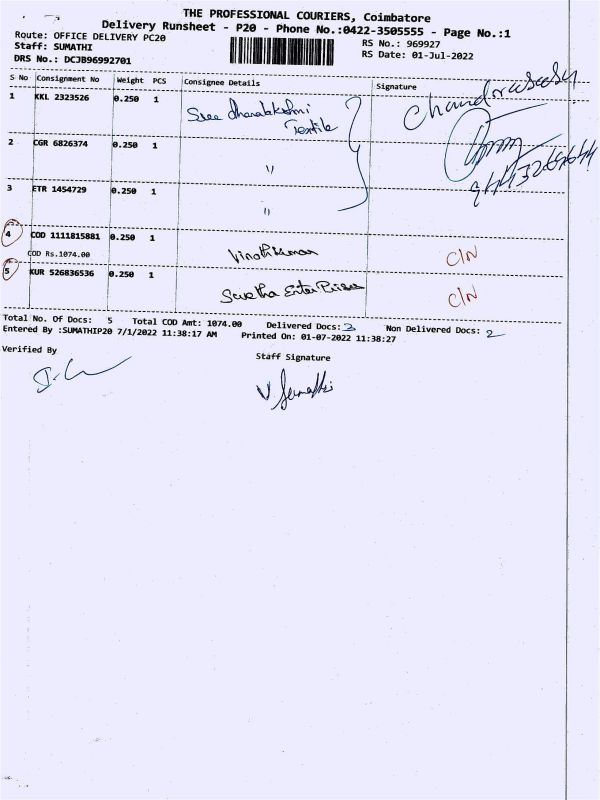 THE PROFESSIONAL COURIERS, Coimbatore
Delivery Runsheet - P20 - Phone No.:0422-3505555 - Page No.:1
Route: OFFICE DELIVERY PC20
RS No.: 969927
Staff: SUMATHI
RS Date: 01-Jul-2022
DRS No.: DCJB96992701
S No Consignment No Weight PCS Consignee Details Signature
1 KKL 2323526 0.250 1 Sree dhanalakshmi
Textile
Chandrasekar
2 CGR 6826374 0.250 1 "
3 ETR 1454729 0.250 1 "
4 COD 1111815881 0.250 1 Vinothkumar C/N
COD Rs.1074.00
5 KUR 526836536 0.250 1 C/N
Total No. Of Docs: 5 Total COD Amt: 1074.00 Delivered Docs: 3 Non Delivered Docs: 2
Entered By :SUMATHIP20 7/1/2022 11:38:17 AM Printed On: 01-07-2022 11:38:27
Verified By
Staff Signature
V. Sumathi